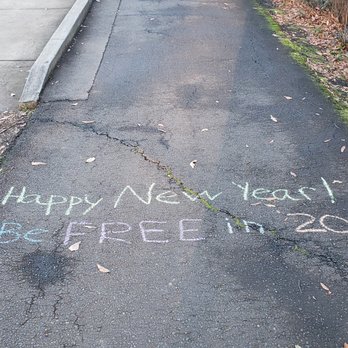 Happy New Year!
Be FREE in 20